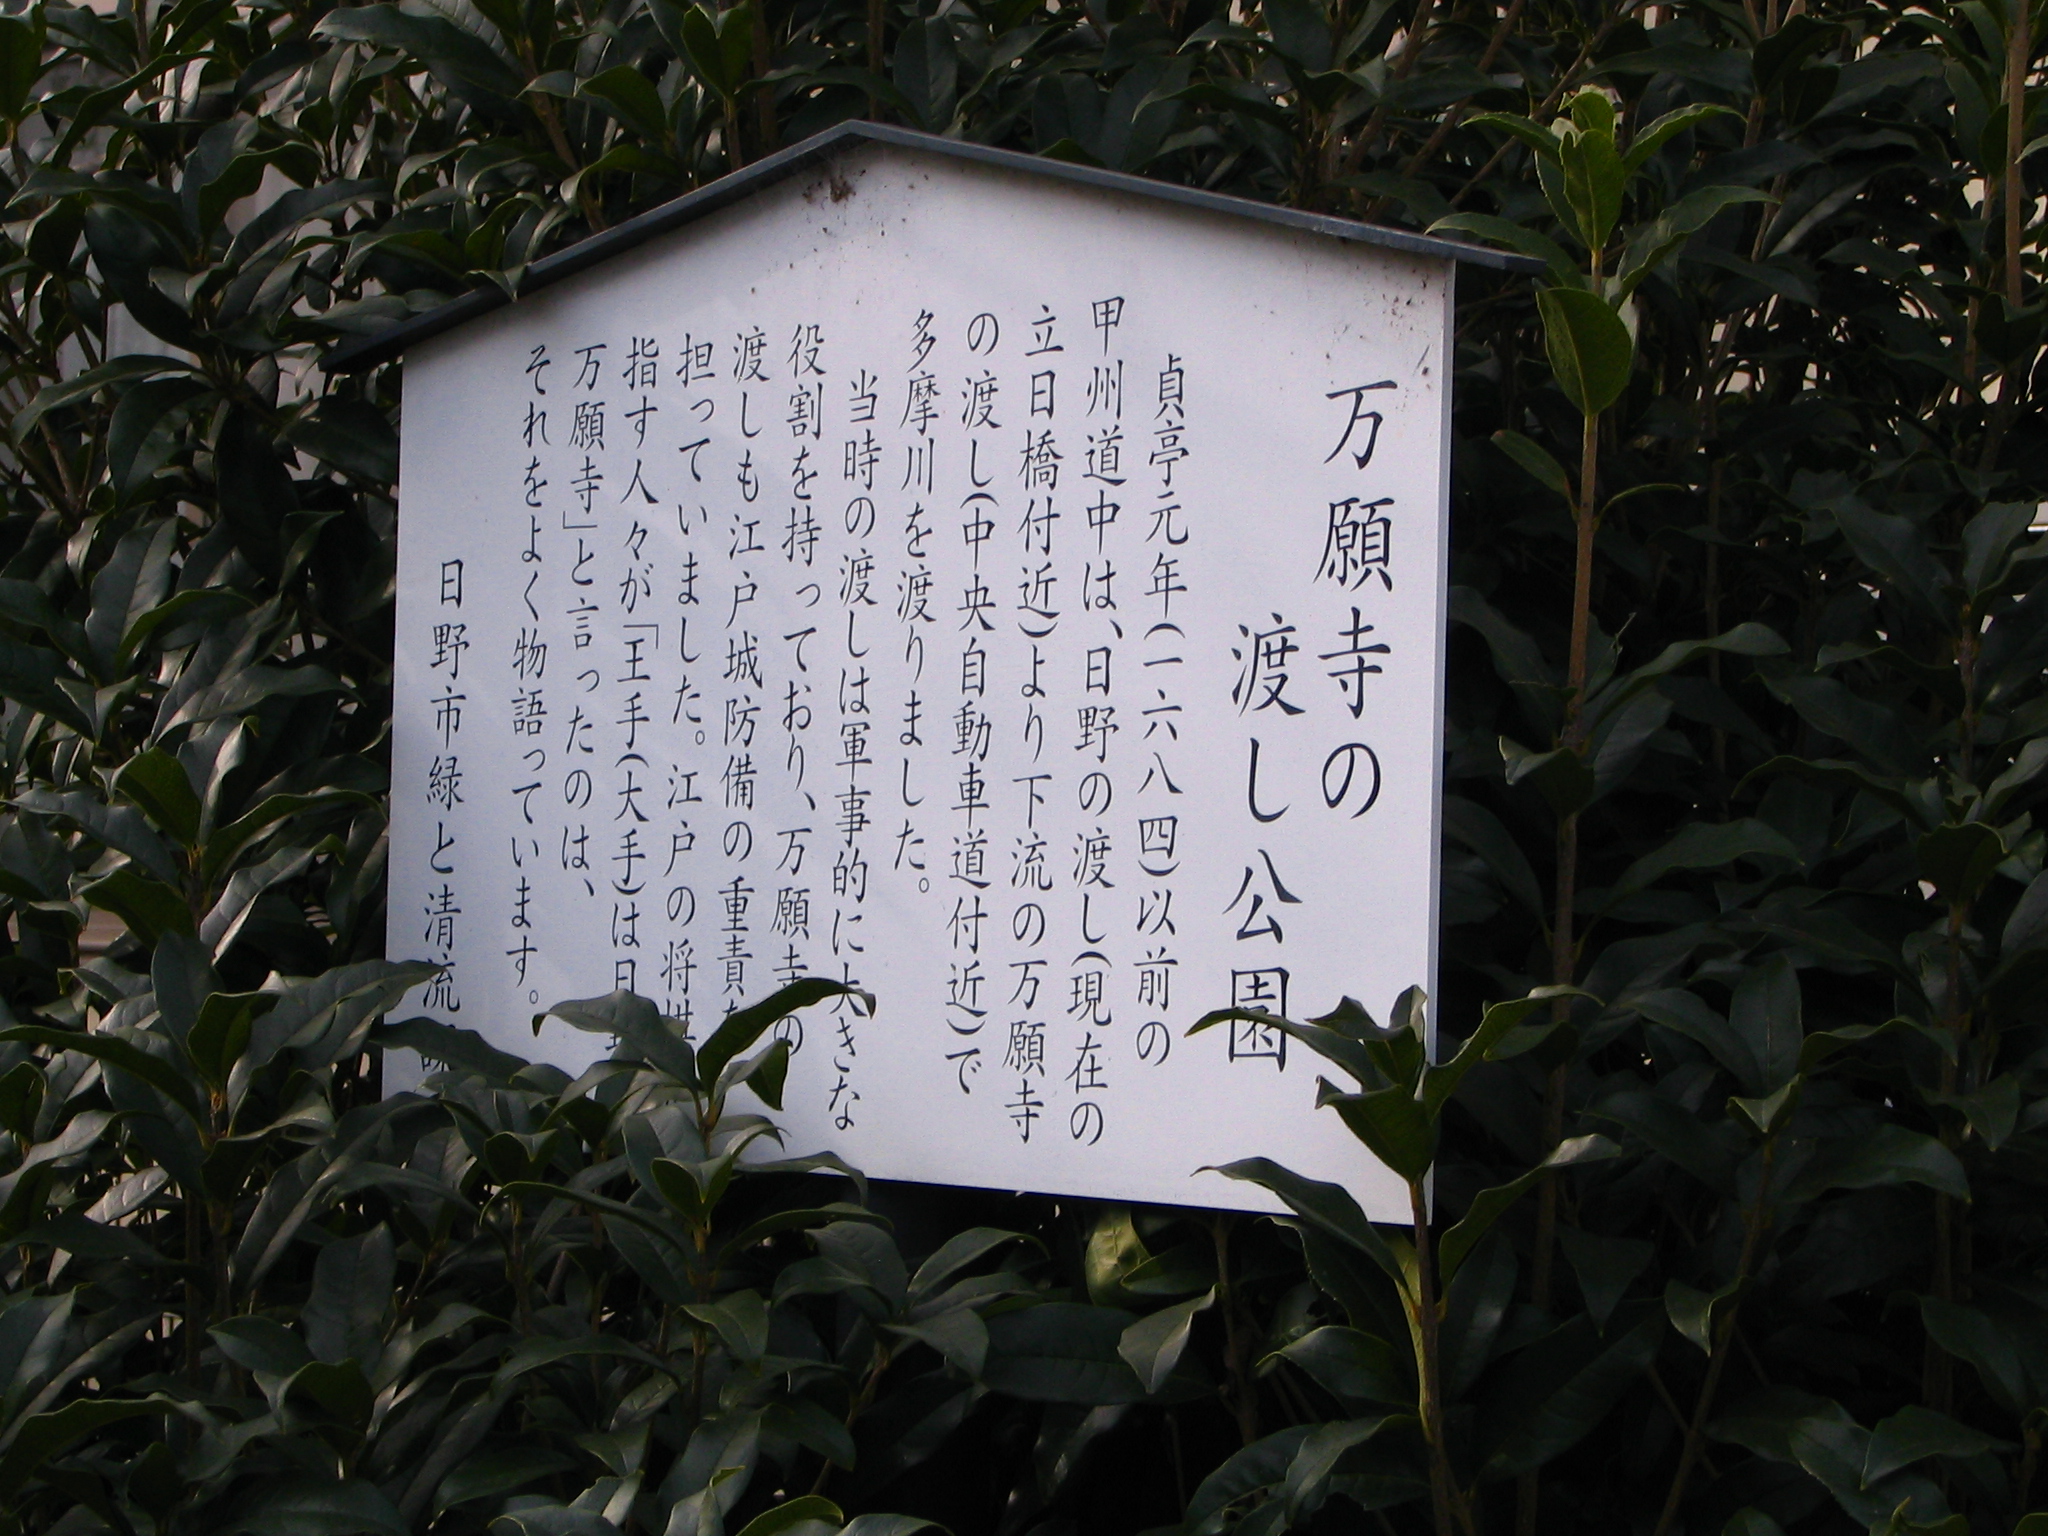 万願寺の
渡し公園
貞亭元年(一六八四)以前の
甲州道中は、日野の渡し(現在の
立日橋付近)より下流の万願寺
の渡し(中央自動車道付近)で
多摩川を渡りました。
当時の渡しは軍事的に大きな
役割を持っており、万願寺の
渡しも江戸城防備の重責を
担っていました。江戸の将
指す人々が「王手(大手)は日
万願寺」と言ったのは、
それをよく物語っています。
日野市緑と清流